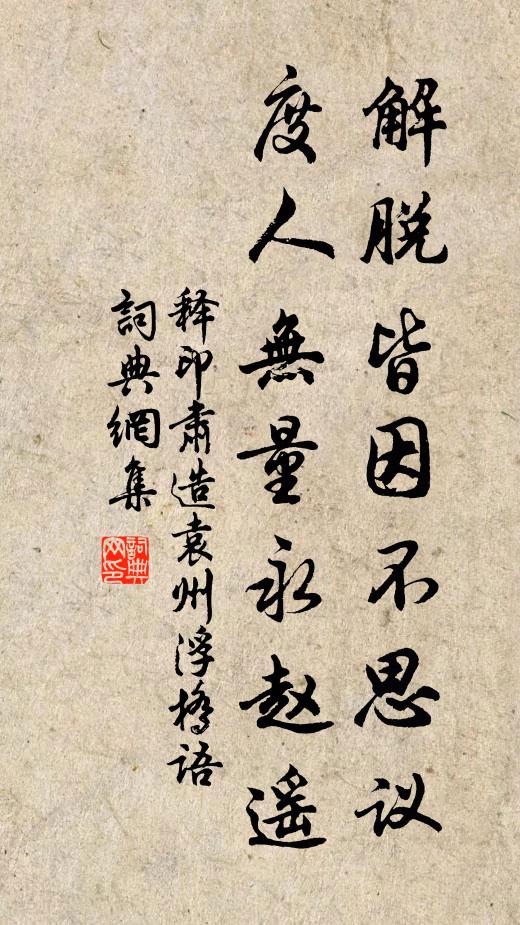 解脱皆因不思议
度人無量永赵遥
释印肅造袁州浮橋语
詞典網集
詞典网印